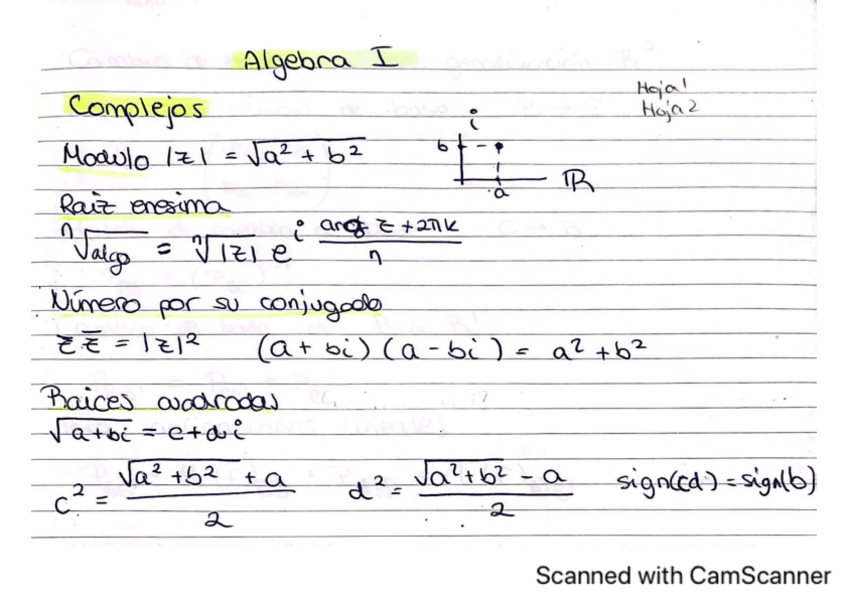 Algebra I
Hoja 1
Hoja 2
Complejos
Modulo |z| = √(a² + b²)
i
b
a
ℝ
Raiz enesima
ⁿ√algo = ⁿ√|z| e^(i (arg z + 2πk)/n)
Número por su conjugado
z z̄ = |z|² (a + bi)(a - bi) = a² + b²
Raices cuadradas
√(a+bi) = c+di
c² = (√(a² + b²) + a)/2 d² = (√(a² + b²) - a)/2 sign(cd) = sign(b)
Scanned with CamScanner